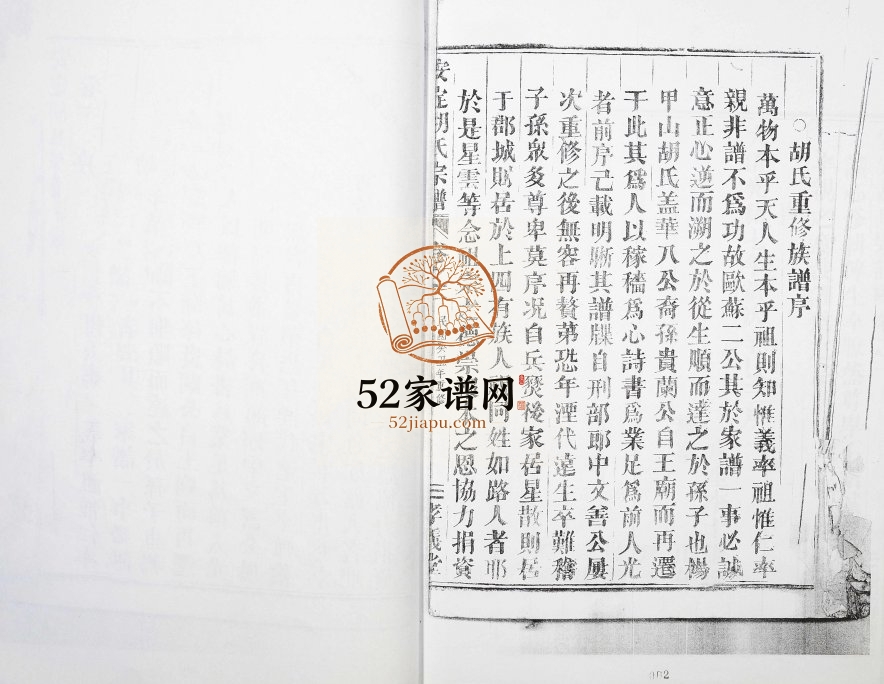 胡氏重修族譜序
萬物本乎天人生本乎祖則知惟義率祖惟仁率
親非譜不爲功故歐蘇二公其於家譜一事必誠
意正心逆而溯之於從生順而達之於孫子也楊
甲山胡氏盖華八公裔孫貴蘭公自王廟而再遷
于此其爲人以稼穡爲心詩書爲業足爲前人光
者前序已載明晰其譜牒自刑部郎中文善公屢
次重修之後無容再贅第恐年湮代遠生卒難稽
子孫眾多尊卑莫序况自兵燹後家居星散則居
于郡城則居於上四有族人同姓如路人者耶
於是星雲等念祖德崇之恩協力捐資
安定胡氏宗譜
孝義堂
52家谱网
52jiapu.com
002